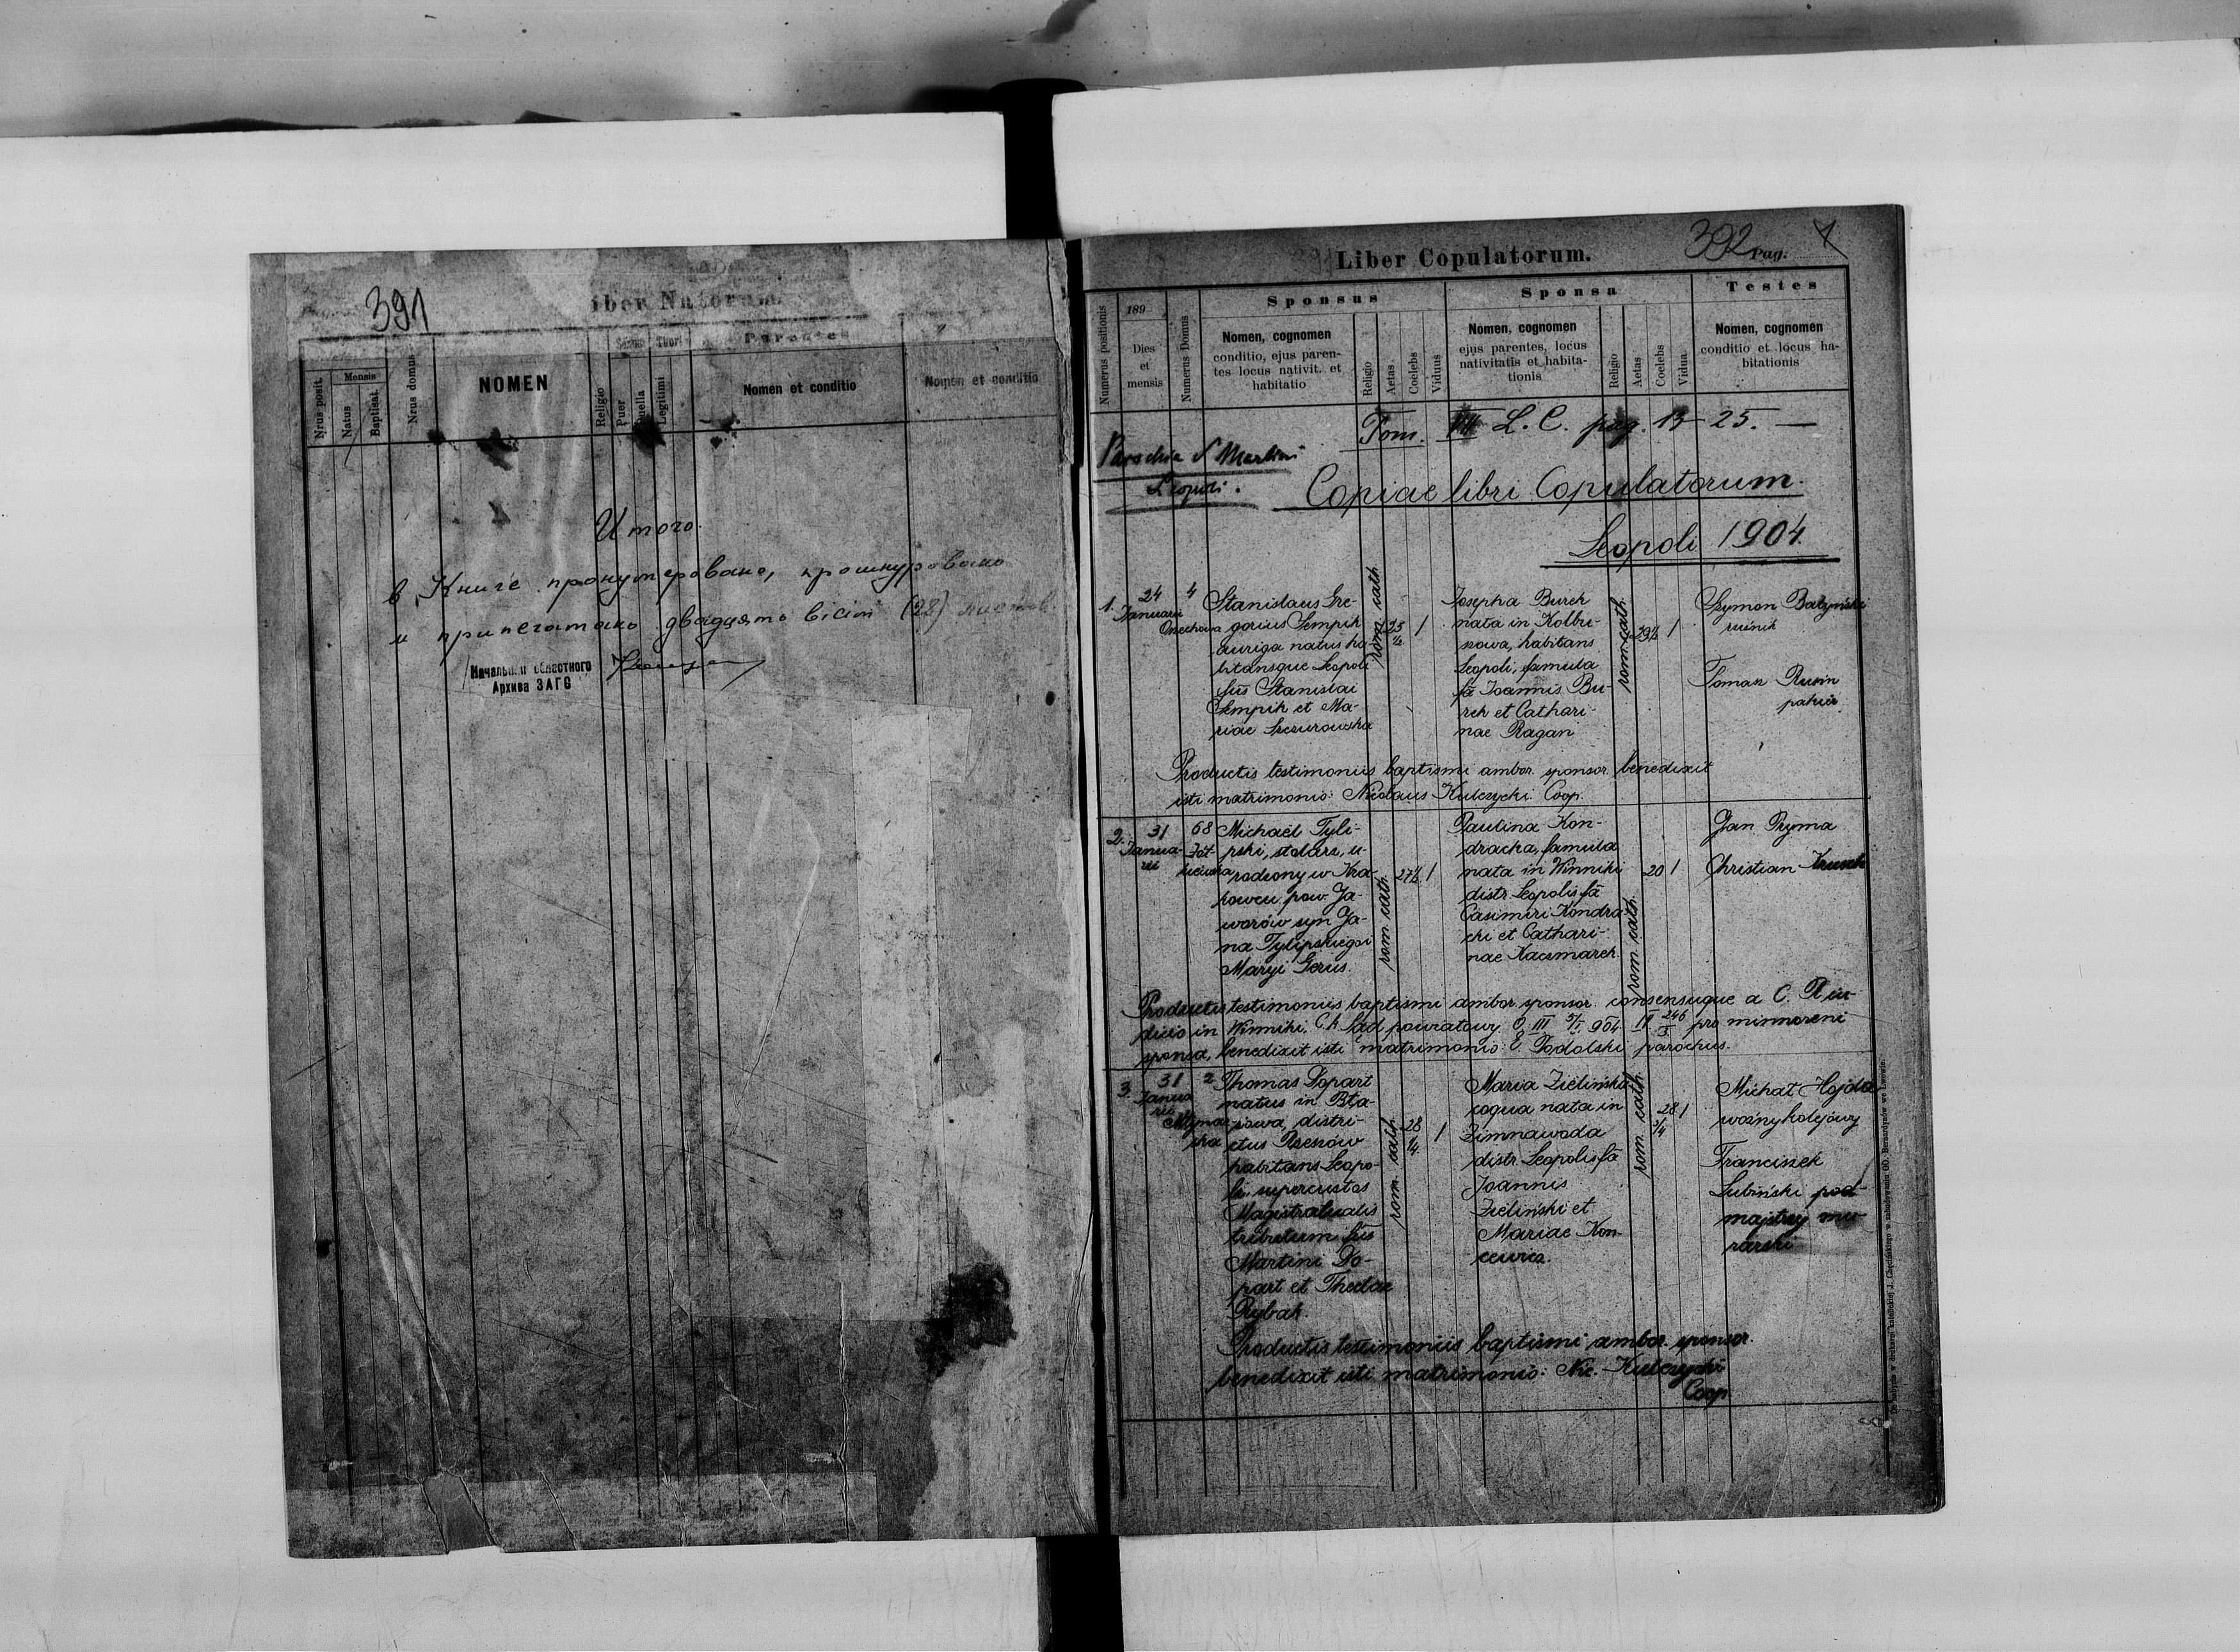 391
iber Natorum
Nrus posit.
Mensis
Natus
Baptisat.
Nrus domus
NOMEN
Religio
Puer
Puella
Thori
Legitimi
Parentes
Nomen et conditio
Nomen et conditio
Итого.
в Книге пронумеровано, прошнуровано
и припечатано двадцять вісім (28) листов.
Начальник областного
Архива ЗАГС
Liber Copulatorum.
392 Pag. 1
Numerus positionis
189
Dies
et
mensis
Numerus Domus
Sponsus
Nomen, cognomen
conditio, ejus paren-
tes locus nativit. et
habitatio
Religio
Aetas
Coelebs
Viduus
Sponsa
Nomen, cognomen
ejus parentes, locus
nativitatis et habita-
tionis
Religio
Aetas
Coelebs
Vidua.
Testes
Nomen, cognomen
conditio et locus ha-
bitationis
Tom. VII L. C. pag. 13-25. —
Parochia S Martini
Leopoli.
Copiae libri Copulatorum.
Leopoli 1904.
1.
24
Januarii
4
Stanislaus Gre-
gorius Sempik
auriga natus ha-
bitansque Leopoli
fus Stanislai
Sempik et Ma-
riae Szczurowska
rom. cath.
1
Josepha Burek
nata in Kolbu-
szowa, habitans
Leopoli, famula
fa Joannis Bu-
rek et Cathari-
nae Ragan
rom. cath.
1
Szymon
Tomasz Rusin
Productis testimoniis baptismi ambor. sponsor. benedixit
isti matrimonio: Nicolaus Kulczycki Coop.
2.
31
Janua-
rii
68
Żół-
kiewska
Michaël Tyli-
pski, stolarz, u-
rodzony w Kra-
kowcu pow. Ja-
worów syn Ja-
na Tylipskiego i
Maryi Gerus.
rom. cath.
27½
1
Paulina Kon-
dracka, famula
nata in Winniki
distr. Leopolis fa
Casimiri Kondra-
cki et Cathari-
nae Kaczmarek.
rom. cath.
20
1
Jan Pryma
Christian
Productis testimoniis baptismi ambor. sponsor. consensuque a C. R iu-
dicio in Winniki. Ck Sąd powiatowy O. III 904 pro minnoreni
sponsa, benedixit isti matrimonio: E. Podolski parochus.
3.
31
Janua
rii
2
Młynar-
ska
Thomas Dopart
natus in Bła-
żowa, distri-
ctus Rzeszów
habitans Leopo-
li, supercustos
Magistratualis
tributum fus
Martini Do-
part et Theclae
Rybak.
rom. cath.
28
1
Maria Zielińska
coqua nata in
Zimnawoda
distr. Leopolis fa
Joannis
Zieliński et
Mariae Kon-
cewicz.
rom. cath.
28
3/4
1
Michał Hojda
woźny kolejowy
Franciszek
Lubiński pod-
majstrzy mu-
rarski
Productis testimoniis baptismi ambor. sponsor.
benedixit isti matrimonio: Nic. Kulczycki
Coop.